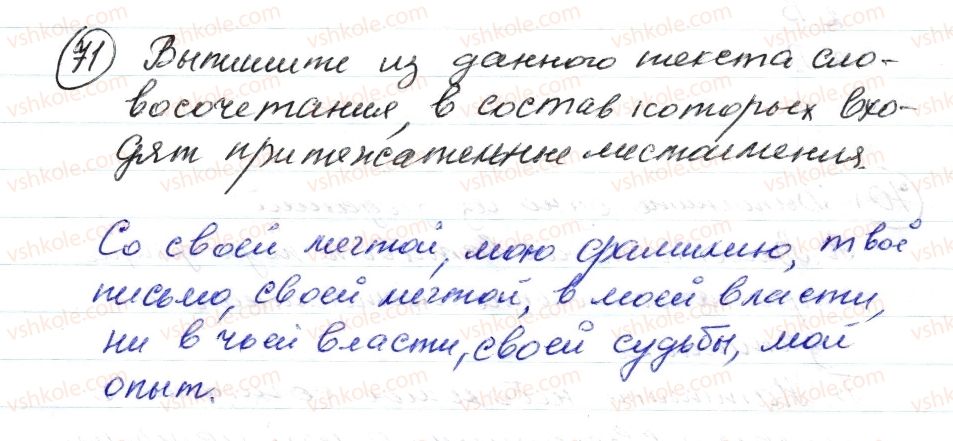 71 Выпишите из данного текста сло-
восочетания, в состав которых вхо-
дят притяжательные местоимения.
Со своей мечтой, мою фамилию, твоё
письмо, своей мечтой, в моей власти,
ни в чьей власти, своей судьбы, мой
опыт.